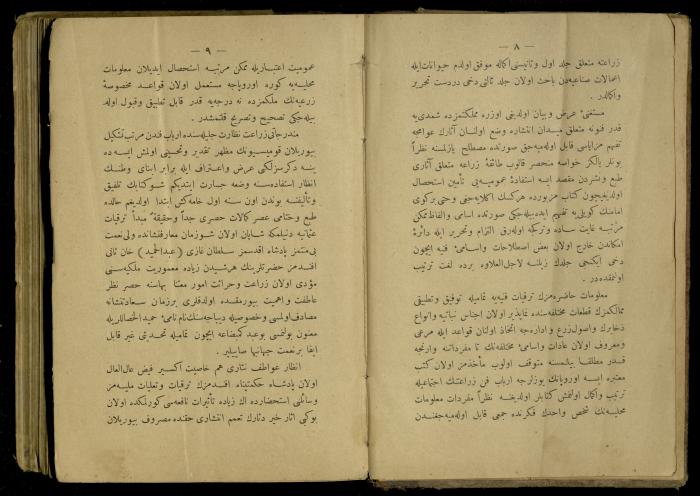 — ٨ —
زراعته متعلق جلد اول و ثانیسنی اکماله موفق اولدم حیوانات ایله
اعمالات صناعیه‌دن باحث اولان جلد ثالثی دخی دردست تحریر
واکمالدر .
مستغنیٔ عرض و بیان اولدیغی اوزره مملکتمزده شمدی‌یه
قدر فنونه متعلق میدان انتشاره وضع اولنان آثارك عوامجه
تفهیم مزایاسی قابل اوله‌میه‌جق صورتده مصطلح یازلمسنه نظراً
بونلر یالکز خواصه منحصر قالوب طائفهٔ زراعه متعلق آثاری
طبع و نشردن مقصد ایسه استفادهٔ عمومیه‌یی تأمین استحصال
اولدیغیچون کتاب مزبورده هرکسك اکلایه‌جغی وحتی برکوی
امامنك کویلی‌یه تفهیم ایده‌بیله‌جکی صورتده اسامی و الفاظ ممکن
مرتبه غایت ساده و ترکجه اولمق التزام و تحریر ایله دائرهٔ
امکاندن خارج اولان بعض اصطلاحات واسامیٔ فنیه ایچون
دخی ایکنجی جلدك ذیلنه لاجل‌العلاوه برده لغت ترتیب
اولنمقده‌در .
معلومات حاضره‌مزك ترقیات فنیه‌یه تمامیله توفیق و تطبیقی
ممالکمزك قطعات مختلفه‌سنده نمایذیر اولان اجناس نباتیه و انواع
ذخایرك واصول زرع و اداره‌جه اتخاذ اولنان قواعد ایله مرعی
و معروف اولان عادات واسامیٔ مختلفه‌نك تا مفرداتنه وارنجه
قدر مطلقا بیلنمسنه متوقف اولوب مأخذمز اولان کتب
معتبره ایسه اوروپانك یوزلرجه ارباب فن زراعتنك اجتماعیله
ترتیب واکمال اولنمش کتابلر اولدیغنه نظراً مفردات معلومات
محلیه‌نك شخص واحدك فکرنده جمعی قابل اوله‌میه‌جغندن
— ٩ —
عمومیت اعتباریله ممکن مرتبه استحصال ایدیلان معلومات
محلیه‌یه کوره اوروپاجه مستعمل اولان قواعد مخصوصهٔ
زرعیه‌نك ملکمزده نه درجه‌یه قدر قابل تطبیق و قبول اوله
بیله‌جکی تصحیح و تصریح قلنمشدر .
مندرجاتی زراعت نظارت جلیله‌سنده ارباب فندن مرتب تشکیل
بیوریلان قومیسیونك مظهر تقدیر و تحسینی اولمش ایسه‌ده
ینه دکرسزلکی عرض و اعتراف ایله برابر ابنای وطنك
انظار استفاده‌سنه وضعه جسارت ایتدیکم شو کتابك تلفیق
و تألیفنه بوندن اون سنه اول خامه‌کش ابتدا اولدیغم حالده
طبع و ختامی عصر کمالات حصری جداً و حقیقةً مبدأ ترقیات
عثمانیه دنیلمکه شایان اولان شوزمان معارفنشانده ولی‌نعمت
بی‌منتمز پادشاه اقدسمز سلطان غازی ( عبدالحمید ) خان ثانی
افندمز حضرتلرینك هرشیدن زیاده معموریت ملکیه‌سنی
مؤدی اولان زراعت و حراثت امور معتنا بهاسنه حصر نظر
عاطفت و اهمیت بیورمقده اولدقلری برزمان سعادتنشانه
مصادف اولمسی و خصوصیله دیباجه‌سنك نام نامیٔ حمیدالخصالریله
معنون بولنمسی بو عبد کمبضاعه ایچون تمامیله تحدثی غیر قابل
ایفا برنعمت جهانبها صاییلیر .
انظار عواطف نثاری هم خاصیت اکسیر فیض عال‌العال
اولان پادشاه حکمتپناه افندمزك ترقیات و تعلیات ملیه‌مز
وسائلنی استحضارده اك زیاده تأثیرات نافعه‌سی کورلمکده اولان
بوکبی آثار خیر دثارك تعمم انتشاری حقنده مصروف بیوریلان